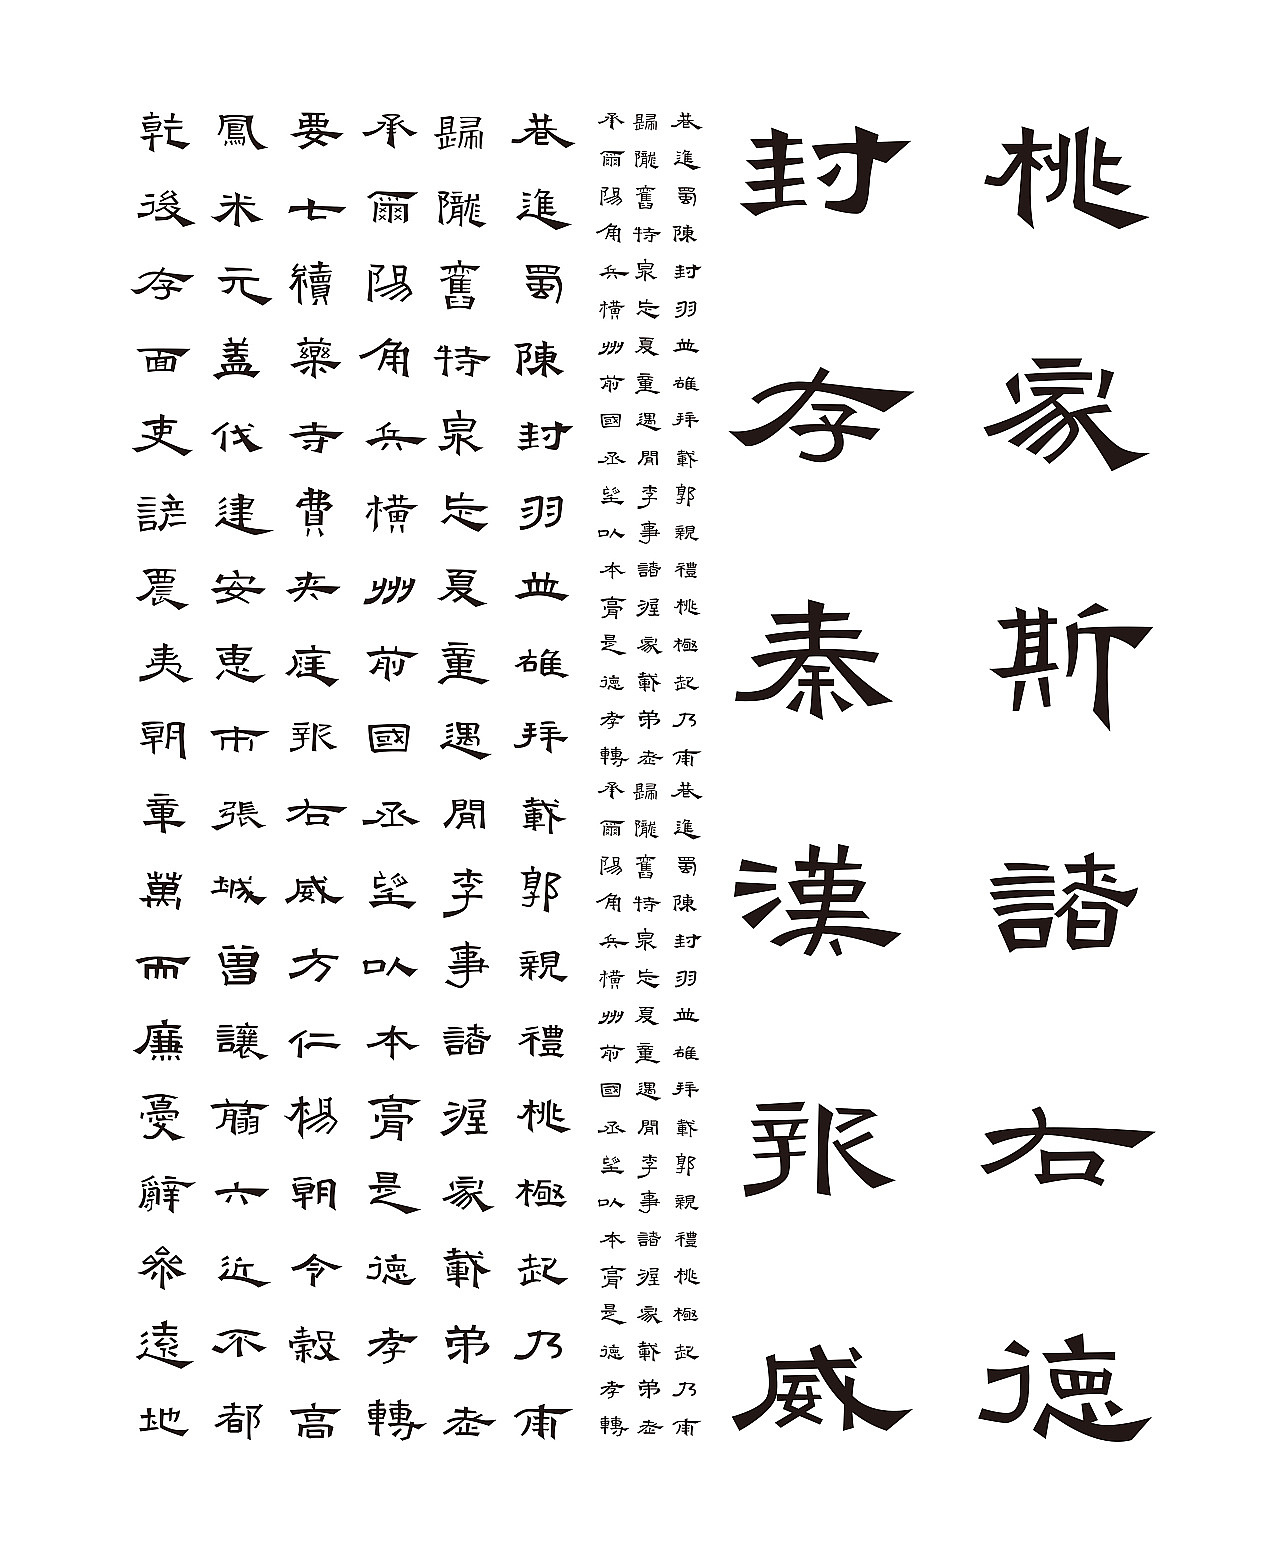 桃家斯諸右德
封存秦漢報威
巷進蜀陳封羽並雄拜載郭親禮桃極起乃甫巷進蜀陳封羽並雄拜載郭親禮桃極起乃甫
歸隴舊特泉忘夏童遇閒李事諸渥家載弟歸隴舊特泉忘夏童遇閒李事諸渥家載弟
承爾陽角兵橫州前國丞望以本膏是德孝轉承爾陽角兵橫州前國丞望以本膏是德孝轉
巷進蜀陳封羽並雄拜載郭親禮桃極起乃甫
歸隴舊特泉忘夏童遇閒李事諸渥家載弟
承爾陽角兵橫州前國丞望以本膏是德孝轉
要七續藥寺費夾庭報右威方仁楊朝令穀高
鳳米元蓋伐建安惠市張城曾讓翦六近不都
乾後存面吏諺農夷朝章萬而廉憂辭參遠地